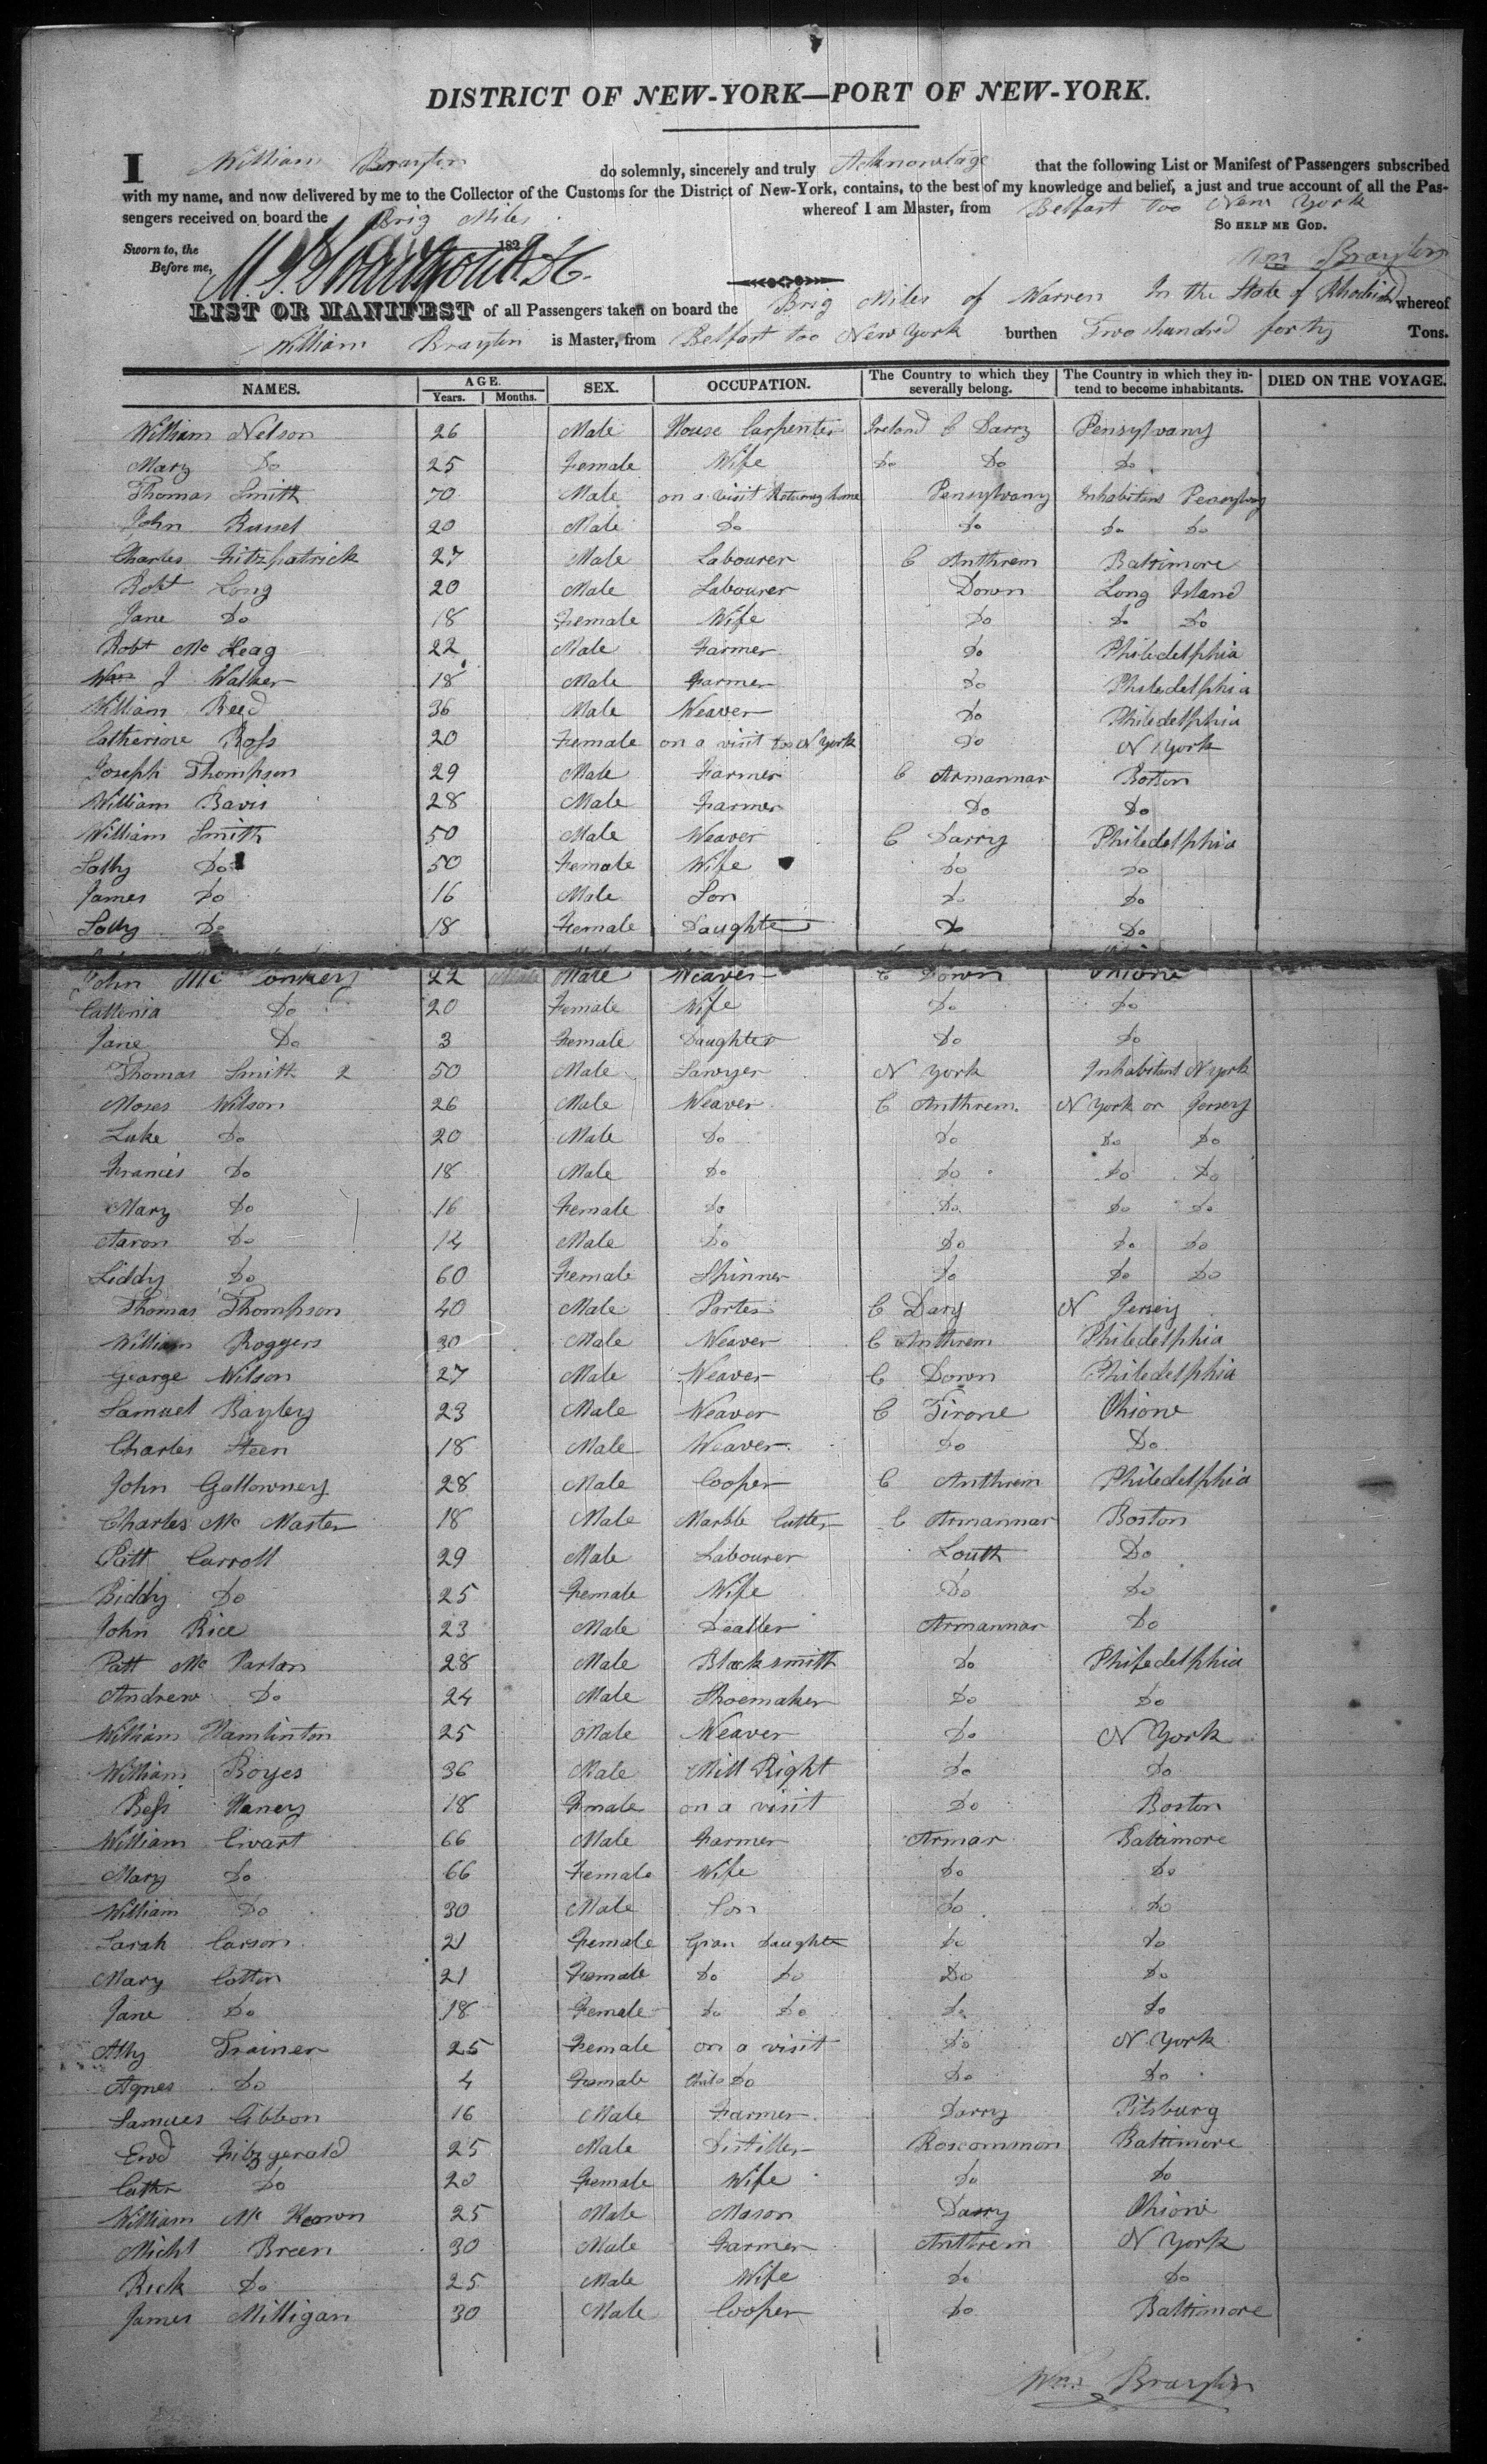 DISTRICT OF NEW-YORK—PORT OF NEW-YORK.
I William Brayton do solemnly, sincerely and truly Acknowlage that the following List or Manifest of Passengers subscribed
with my name, and now delivered by me to the Collector of the Customs for the District of New-York, contains, to the best of my knowledge and belief, a just and true account of all the Pas-
sengers received on board the Brig Miles whereof I am Master, from Belfast too New York
So help me God.
Sworn to, the 182
Before me, Wm Brayton
LIST OR MANIFEST of all Passengers taken on board the Brig Miles of Warren In the State of Rhodisd whereof
William Brayton is Master, from Belfast too New York burthen Two hundred forty Tons.
NAMES. AGE. Years. Months. SEX. OCCUPATION. The Country to which they severally belong. The Country in which they intend to become inhabitants. DIED ON THE VOYAGE.
William Nelson 26 Male House Carpenter Ireland C Darry Pensylvany
Mary Do 25 Female Wife Do Do Do
Thomas Smith 70 Male on a visit Returng home Pensylvany Inhabitant Pensylvany
John Russel 20 Male Do Do Do Do
Charles Fitzpatrick 27 Male Labourer C Anthrem Baltimore
Robt Long 20 Male Labourer Down Long Island
Jane Do 18 Female Wife Do Do Do
Robt Mc Keag 22 Male Farmer Do Philedelphia
Wm J Walker 18 Male Farmer Do Philedelphia
William Reed 36 Male Weaver Do Philedelphia
Catherine Ross 20 Female on a visit too N York Do N York
Joseph Thompson 29 Male Farmer C Armannar Boston
William Bavis 28 Male Farmer Do Do
William Smith 50 Male Weaver C Darry Philedelphia
Sally Do 50 Female Wife Do Do
James Do 16 Male Son Do Do
Sally Do 18 Female Daughter Do Do
John Mc Conkery 22 Male Weaver C Down Ohione
Cattenia Do 20 Female Wife Do Do
Jane Do 3 Female Daughter Do Do
Thomas Smith 2 50 Male Sawyer N York Inhabitant N york
Moses Wilson 26 Male Weaver C Anthrem N York or Jersey
Luke Do 20 Male Do Do Do Do
Francis Do 18 Male Do Do Do Do
Mary Do 16 Female Do Do Do Do
Aaron Do 14 Male Do Do Do Do
Liddy Do 60 Female Spinner Do Do Do
Thomas Thompson 40 Male Porter C Dary N Jersey
William Roggers 30 Male Weaver C Anthrem Philedelphia
George Wilson 27 Male Weaver C Down Philedelphia
Samuel Bayley 23 Male Weaver C Tirone Ohione
Charles Steen 18 Male Weaver Do Do
John Gallowney 28 Male Cooper C Anthrem Philedelphia
Charles Mc Master 18 Male Marble Cutter C Armannar Boston
Patt Carroll 29 Male Labourer Louth Do
Biddy Do 25 Female Wife Do Do
John Rice 23 Male Dealler Armannar Do
Patt Mc Parlan 28 Male Blacksmith Do Philedelphia
Andrew Do 24 Male Shoemaker Do Do
William Hamlinton 25 Male Weaver Do N York
William Boyes 36 Male Mill Right Do Do
Bess Haney 18 Fmale on a visit Do Boston
William Ewart 66 Male Farmer Armar Baltimore
Mary Do 66 Female Wife Do Do
William Do 30 Male Son Do Do
Sarah Carson 21 Female Gran Daughte Do Do
Mary Cotter 21 Female Do Do Do Do
Jane Do 18 Female Do Do Do Do
Ally Trainer 25 Female on a visit Do N York
Agnes Do 4 Female Child Do Do Do
Samues Gibbon 16 Male Farmer Darry Pitsburg
Ewd Fitzgerald 25 Male Distiller Roscommon Baltimore
Cathr Do 20 Female Wife Do Do
William Mc Keown 25 Male Mason Darry Ohione
Michl Breen 30 Male Farmer Anthrem N York
Rick Do 25 Male Wife Do Do
James Milligan 30 Male Cooper Do Baltimore
Wm Brayton